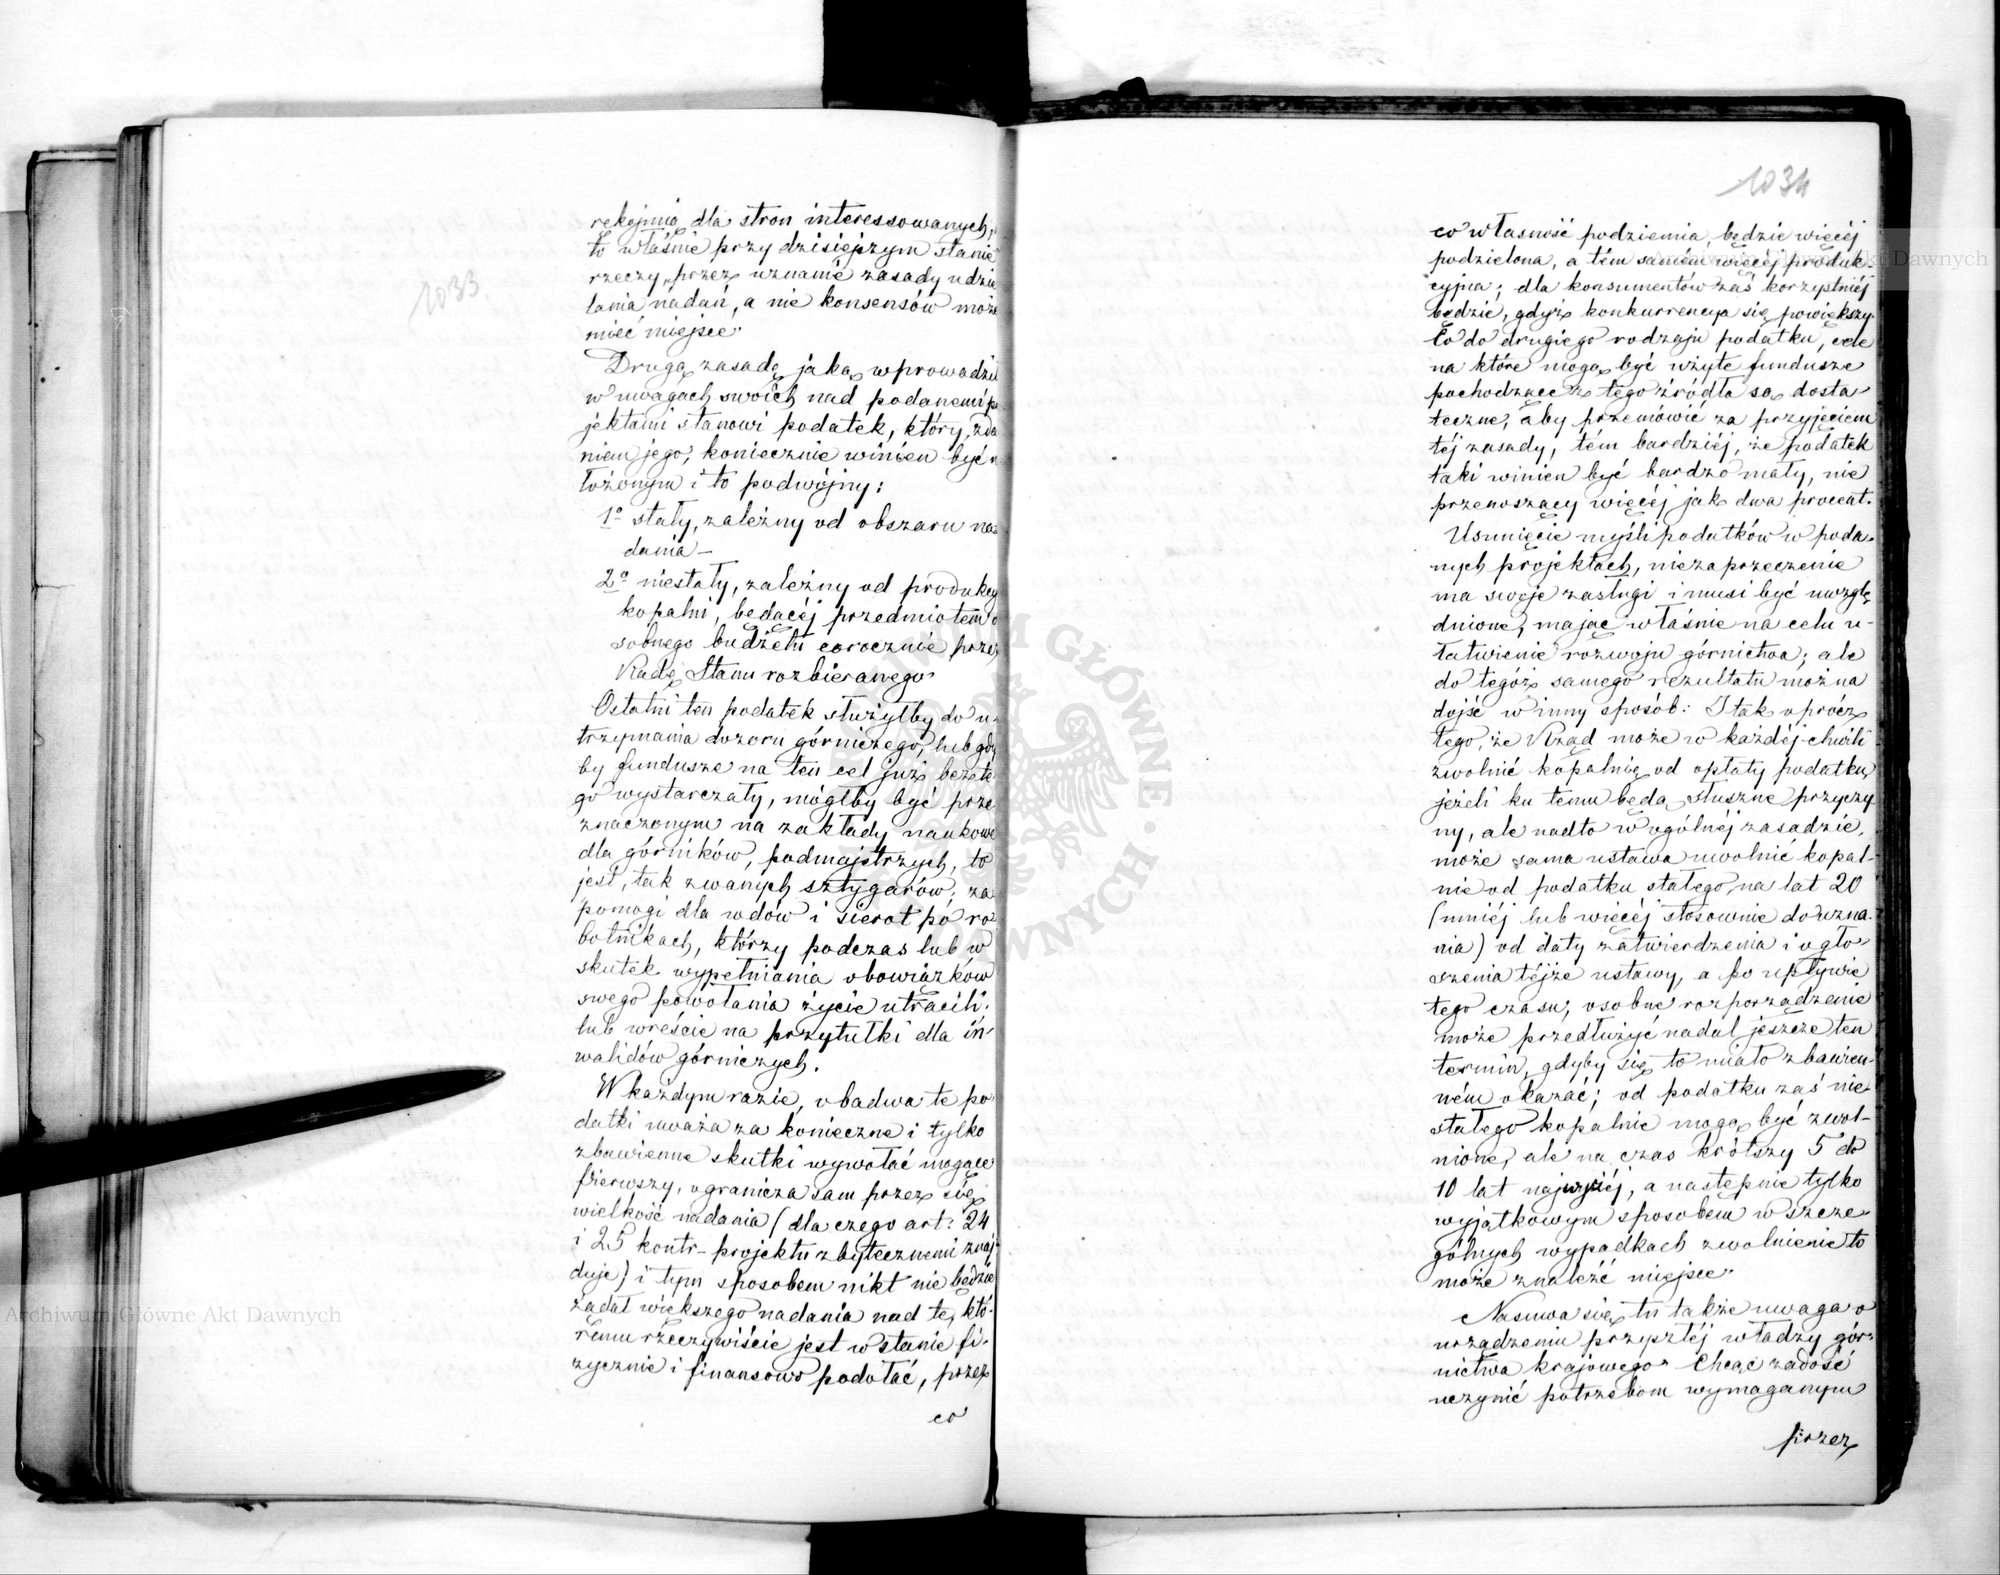 1033
rękojmią dla stron interessowanych,
to właśnie przy dzisiejszym stanie
rzeczy, przez uznanie zasady udzie
lania nadań, a nie konsensów może
mieć miejsce.
Drugą zasadę jaką wprowadził
w uwagach swoich nad podanemi pro
jektami stanowi podatek, który, zda
niem jego, koniecznie winien być na
łożonym i to podwójny:
1o stały, zależny od obszaru na
dania —
2o niestały, zależny od produkcyi
kopalni, będącej przedmiotem o
sobnego budżetu corocznie przez
Radę Stanu rozbieranego.
Ostatni ten podatek służyłby do u
trzymania dozoru górniczego, lub gdy
by fundusze na ten cel już bez te
go wystarczały, mógłby być prze
znaczonym na zakłady naukowe
dla górników, podmajstrzych, to
jest, tak zwanych sztygarów, za
pomogi dla wdów i sierot po ro
botnikach, którzy podczas lub w
skutek wypełniania obowiązków
swego powołania życie utracili,
lub wreście na przytułki dla in-
walidów górniczych.
W każdym razie, obadwa te po
datki uważa za konieczne i tylko
zbawienne skutki wywołać mogące
pierwszy, ogranicza sam przez się
wielkość nadania (dla czego art: 24
i 25 kontr-projektu zbytecznemi znaj-
duje) i tym sposobem nikt nie będzie
żądał większego nadania nad te, któ-
remu rzeczywiście jest w stanie fi-
zycznie i finansowo podołać, przez
co
1034
co własność podziemia, będzie więcéj
podzielona, a tém samém więcéj produk-
cyjna; dla konsumentów zaś korzystniéj
będzie, gdyż konkurrencya się powiększy.
Co do drugiego rodzaju podatku, cele
na które mogą być użyte fundusze
pochodzące z tego źródła są dosta
teczne, aby przemówić za przyjęciem
téj zasady, tém bardziéj, że podatek
taki winien być bardzo mały, nie
przenoszący więcéj jak dwa procent.
Usunięcie myśli podatków w poda-
nych projektach, niezaprzeczenie
ma swoje zasługi i musi być uwzglę
dnione, mając właśnie na celu u-
łatwienie rozwoju górnictwa; ale
do tegóż samego rezultatu można
dojść w inny sposób: I tak oprócz
tego, że Rząd może w każdéj chwili
zwolnić kopalnię od opłaty podatku,
jeżeli ku temu będą słuszne przyczy
ny, ale nadto w ogólnéj zasadzie,
może sama ustawa uwolnić kopal-
nie od podatku stałego, na lat 20
(mniéj lub więcéj stosownie do uzna-
nia) od daty zatwierdzenia i ogło-
szenia téjże ustawy, a po upływie
tego czasu, osobne rozporządzenie
może przedłużyć nadal jeszcze ten
termin, gdyby się to miało zbawien-
ném okazać; od podatku zaś nie-
stałego kopalnie mogą być zwol-
nione, ale na czas krótszy 5 do
10 lat najwyżéj, a następnie tylko
wyjątkowym sposobem w szcze-
gólnych wypadkach zwolnienie to
może znaleźć miejsce.
Nasuwa się tu także uwaga o
urządzeniu przyszłéj władzy gór-
nictwa krajowego. Chcąc zadość
uczynić potrzebom wymaganym
przez
Archiwum Główne Akt Dawnych
Archiwum Główne Akt Dawnych